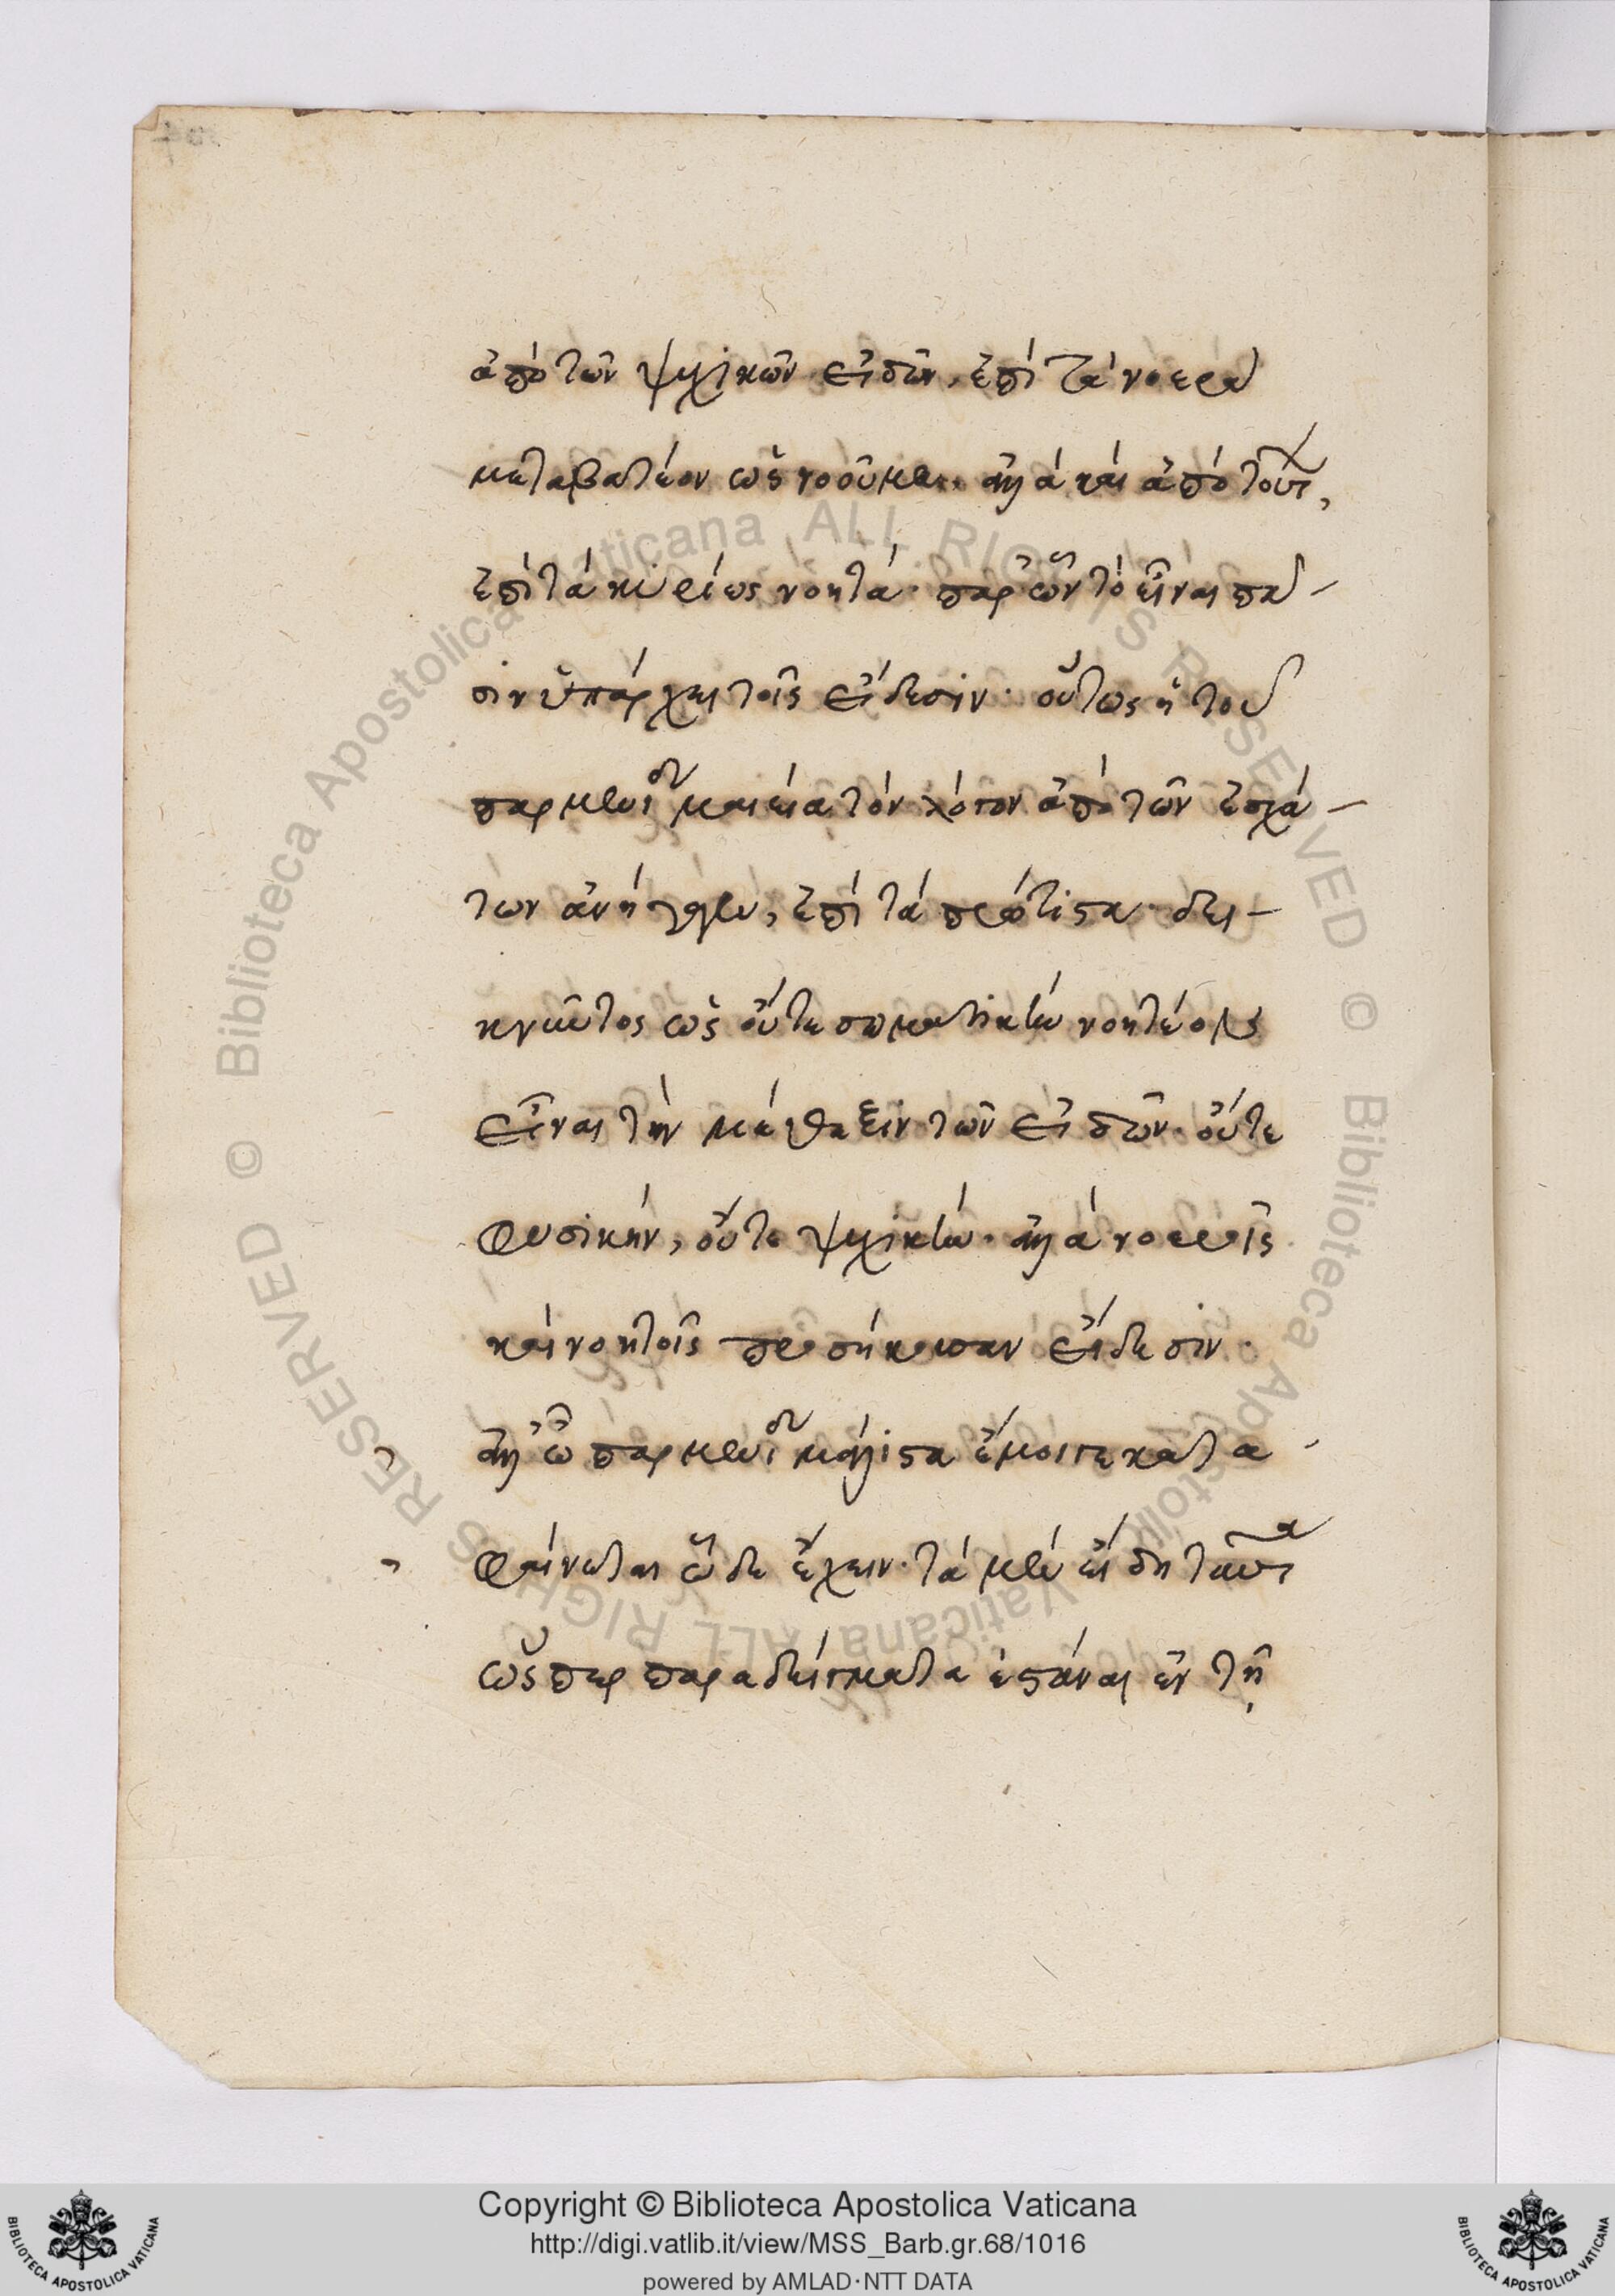 ἀπὸ τῶν ψυχικῶν εἰδῶν, ἐπὶ τὰ νοερὰ
μεταβατέον ὡς νοοῦμεν. ἀλλὰ καὶ ἀπὸ τούτων,
ἐπὶ τὰ κυρίως νοητά· παρ' ὧν τὸ εἶναι πᾶ-
σιν ὑπάρχει τοῖς εἴδεσιν· οὕτως ἡ τοῦ
παρμενίδου μαιεία τὸν λόγον ἀπὸ τῶν ἐσχά-
των ἀνήγαγεν, ἐπὶ τὰ πρώτιστα· δει-
κνῦντος ὡς οὔτε σωματικὴν νοητέον
εἶναι τὴν μέθεξιν τῶν εἰδῶν· οὔτε
φυσικὴν, οὔτε ψυχικήν· ἀλλὰ νοεροῖς
καὶ νοητοῖς προσήκουσαν εἴδεσιν·
ἀλλ' ὦ παρμενίδη μάλιστα ἔμοιγε κατα-
φαίνεται ὧδε ἔχειν· τὰ μὲν εἴδη ταῦτα
ὥσπερ παραδείγματα ἑστάναι ἐν τῇ
Copyright © Biblioteca Apostolica Vaticana
http://digi.vatlib.it/view/MSS_Barb.gr.68/1016
powered by AMLAD·NTT DATA